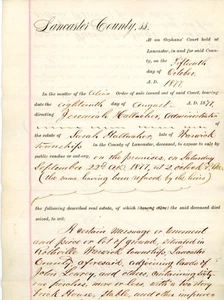 Lancaster County, ss.
At an Orphans' Court held at
Lancaster, in and for said Coun-
ty, on the Fifteenth
day of October,
A.D. 1877
In the matter of the Order of sale issued out of said Court, bearing
date the eighteenth day of August A.D. 1877,
directing Jeremiah Administrator
of the estate of Sarah late of Warwick
township in the County of Lancaster, deceased, to expose to sale by
public vendue or out-cry, on the premises, on Saturday
September 22d, 1877, at 2 o'clock P.M.
(the same having been refused by the heirs)
the following described real estate, of which the said deceased died
seized, to wit:
A certain Messuage or tenement
and piece or lot of ground, situated in
Rothsville Warwick township, Lancaster
County, aforesaid, adjoining lands of
John and others, containing
acres, more or less with a two story
House, Stable, and other